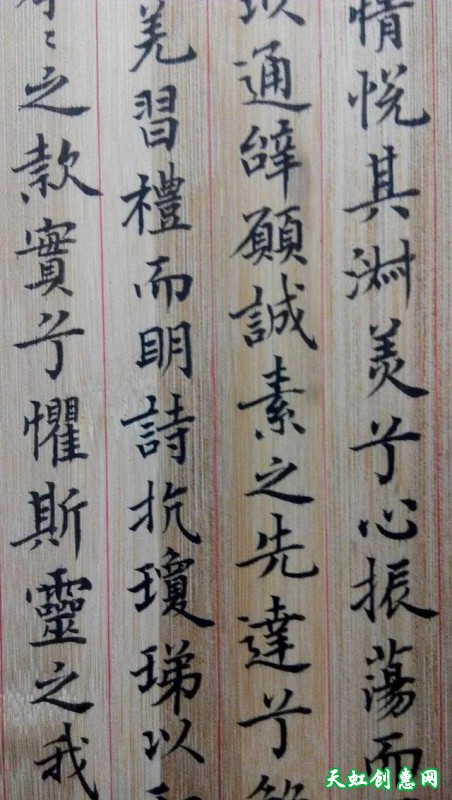 情悅其淑美兮心振蕩而
以通辭願誠素之先達兮
羌習禮而明詩抗瓊珶以和
々之款實兮懼斯靈之我
天虹创惠网